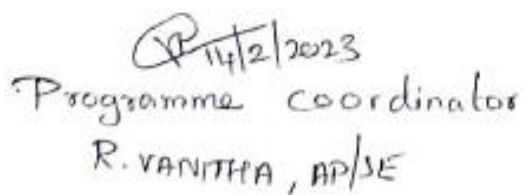 14/2/2023
Programme coordinator
R. VANITHA, AP/SE